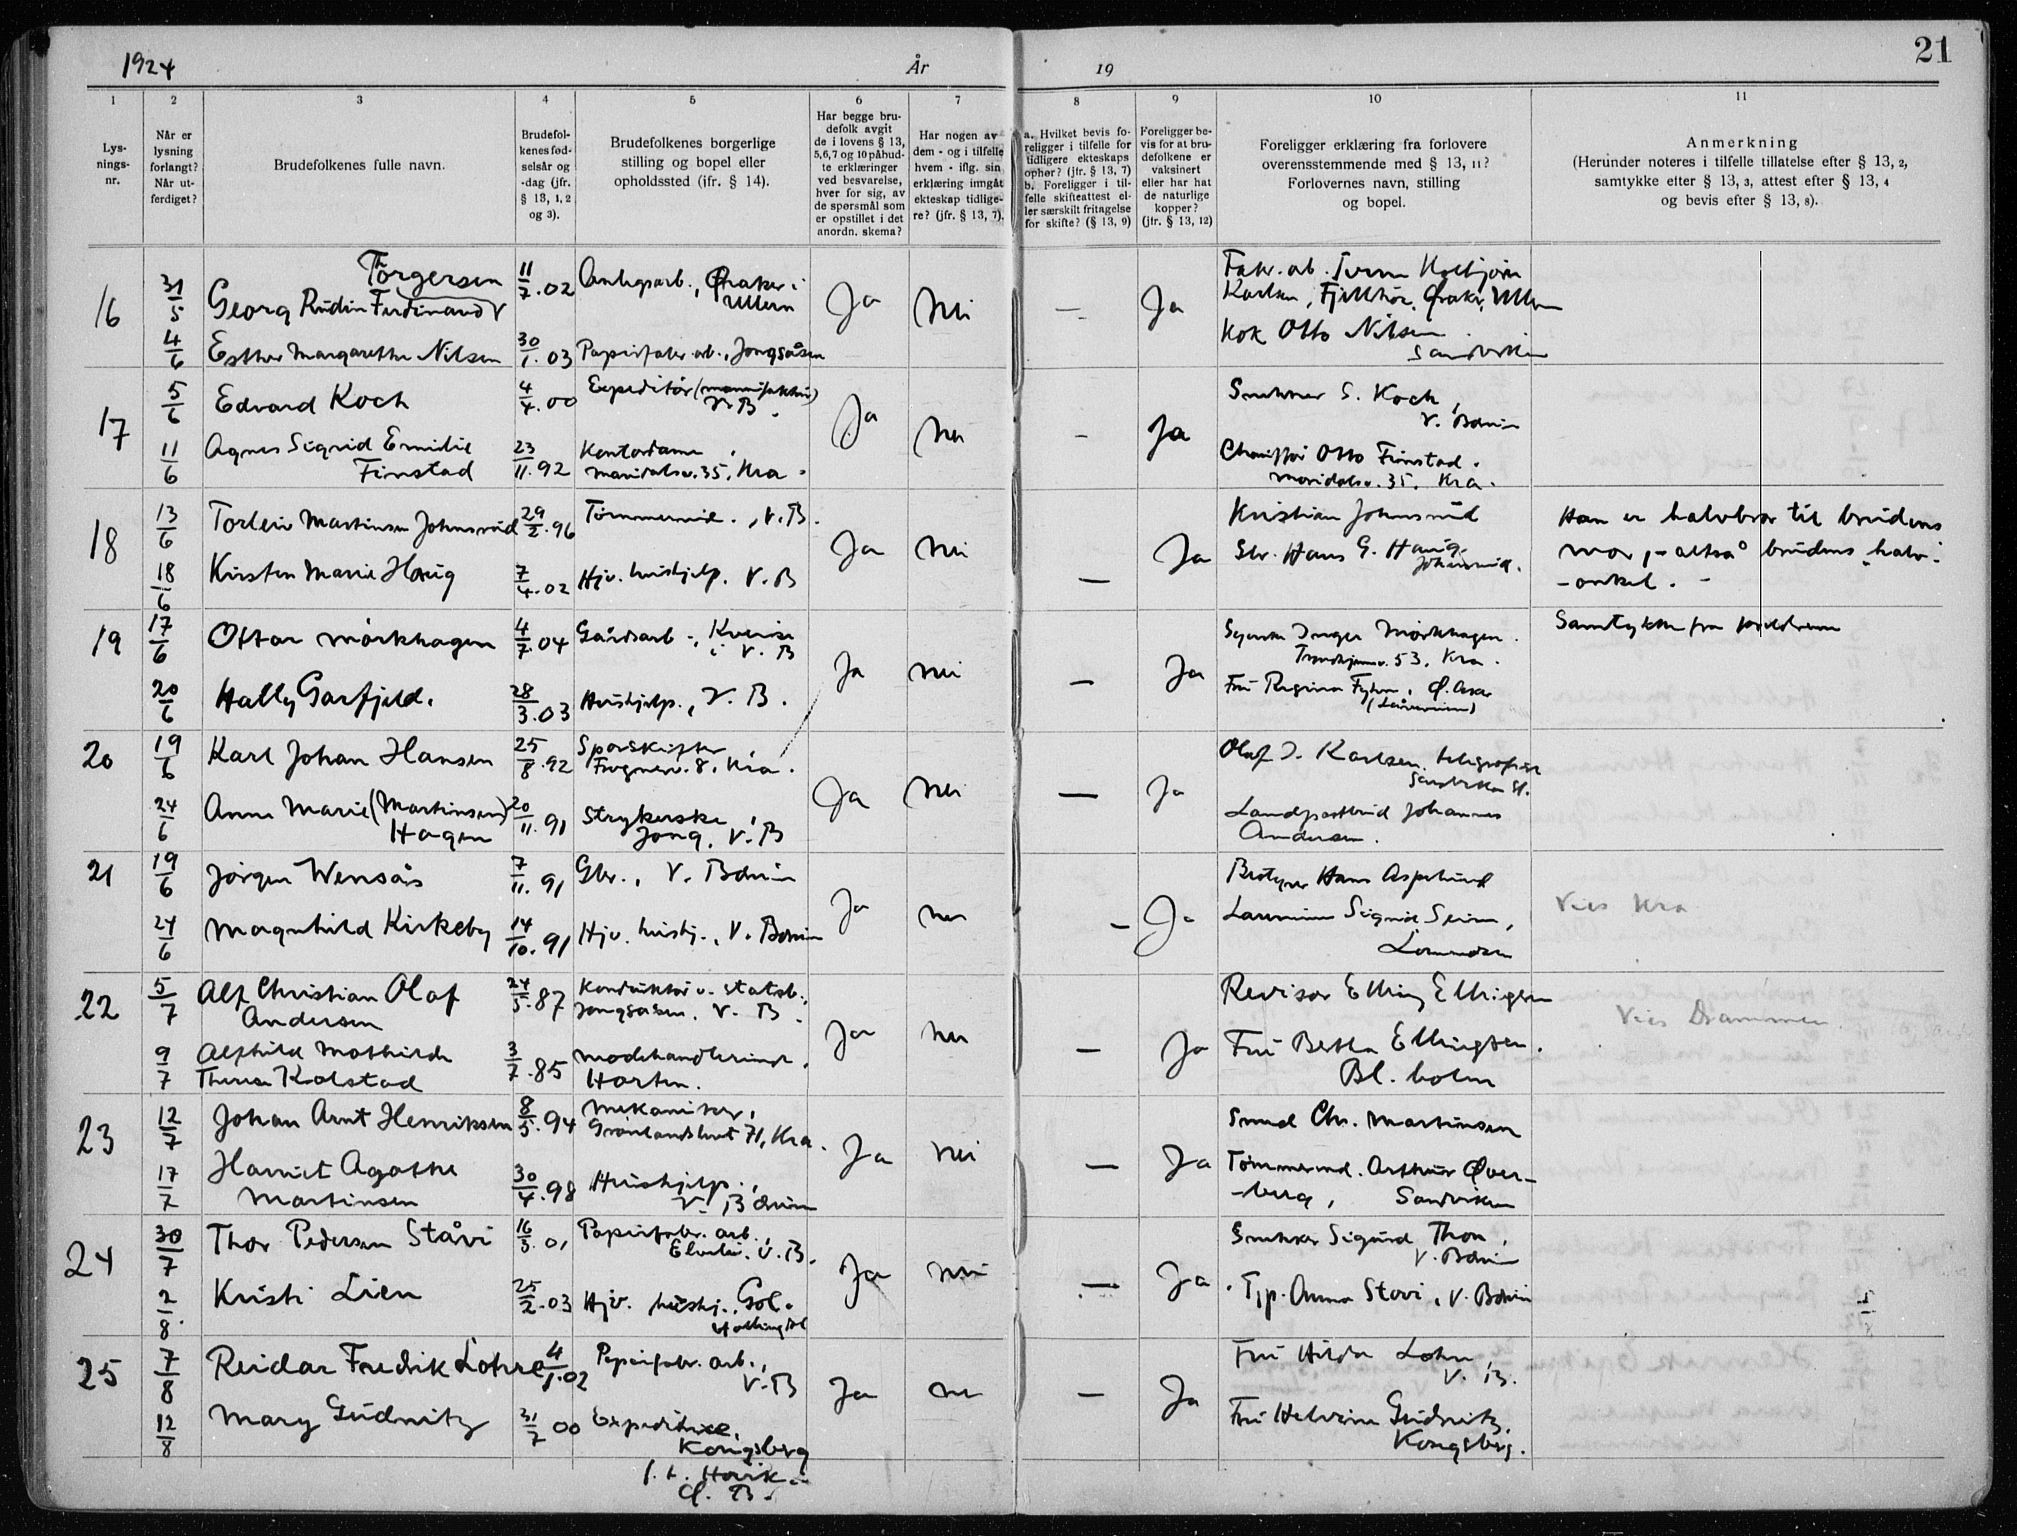 1924
År
19
21
1
2
3
4
5
6
7
8
9
10
11
Lys-
nings-
nr.
Når er
lysning
forlangt?
Når ut-
ferdiget?
Brudefolkenes fulle navn.
Brudefol-
kenes fød-
selsår og
-dag (jfr.
§ 13, 1, 2
og 3).
Brudefolkenes borgerlige
stilling og bopel eller
opholdssted (ifr. § 14).
Har begge bru-
defolk avgit
de i lovens § 13,
5,6,7 og 10 påbud-
te erklæringer
ved besvarelse,
hver for sig, av
de spørsmål som
er opstillet i det
anordn. skema?
Har nogen av
dem - og i tilfelle
hvem - iflg. sin
erklæring imgåt
ekteskap tidlige-
re? (jfr. § 13, 7).
a. Hvilket bevis fo-
religger i tilfelle for
tidligere ekteskaps
ophør? (jfr. § 13, 7)
b. Foreligger i til-
felle skifteattest el-
ler særskilt fritagelse
for skifte? (§ 13, 9)
Foreligger be-
vis for at bru-
defolkene er
vaksinert
eller har hat
de naturlige
kopper?
(jfr. § 13, 12)
Foreligger erklæring fra forlovere
overensstemmende med § 13, 11?
Forlovernes navn, stilling
og bopel.
Anmerkning
(Herunder noteres i tilfelle tillatelse efter § 13, 2,
samtykke efter § 13, 3, attest efter § 13, 4
og bevis efter § 13, 8).
16
31/5
Thorgersen
Georg Rudin Ferdinand
11/7.02
Ullern
Ja
Nei
—
Ja
Kok Otto Nilsen
Sandviken
4/6
Esther Margarethe Nilsen
30/1.03
Papirfabr. arb., Jongsåsen
17
5/6
Edvard Koch
4/4.00
Expeditør (manufaktur)
V. B.
Ja
Nei
–
Ja
S. Koch,
V. Bærum
11/6
Agnes Sigrid Emilie
Finstad
23/11.92
Kontordame,
Maridalsv. 35, Kra.
Chauffør Otto Finstad.
Maridalsv. 35. Kra.
18
13/6
Torleiv Martinsen Johnsrud
29/2.96
Tømmermd., V. B.
Ja
Nei
—
Ja
Kristian Johnsrud
Gbr. Hans G. Haug.
Johnsrud.
Han er halvbror til brudens
mor, - altså brudens halv-
-onkel. -
18/6
Kirsten Marie Haug
7/4.02
Hjv. hushjelp, V. B
19
17/6
Ottar Mörkhagen
4/7.04
Gårdsarb.,
i V. B
Ja
Nei
—
Ja
Inger Mörkhagen.
Trondhjemsv. 53, Kra.
Samtykke fra foreldrene
20/6
Hally Garfjeld.
28/3.03
Hushjelp, V. B.
Fru Regina
20
19/6
Karl Johan Hansen
25/8.92
Sporskifter,
Frognerv. 8, Kra.
Ja
Nei
—
Ja
Olaf J. Karlsen, telegrafist
Sandvika St.
24/6
Anna Marie (Martinsen)
Hagen
20/11.91
Strykerske,
Jong, V. B
Landpostbud Johannes
Andersen.
21
19/6
Jörgen Wensås
7/11.91
Gbr., V. Bærum
Ja
Nei
–
Ja
Bestyrer Hans Asperud
Vies Kra
24/6
Magnhild Kirkeby
14/10.91
Hjv. hushj., V. Bærum
Lærerinne Sigrid Seim,
Lommedalen
22
5/7
Alf Christian Olaf
Andersen
24/5.87
Konduktør v. statsb.,
Jongsåsen, V. B.
Ja
Nei
—
Ja
Revisor Elling Ellingsen
Vies Drammen
9/7
Alfhild Mathilde
Therese Kolstad
3/7.85
Modehandlerinde,
Horten.
Fru Bertha Ellingsen.
Bl. holm
23
12/7
Johan Arnt Henriksen
8/5.94
Mekaniker,
71, Kra.
Ja
Nei
—
Ja
Smed Chr. Martinsen
17/7
Harriet Agathe
Martinsen
30/4.98
Hushjelp.,
V. Bærum
Tømmermd. Arthur Øver-
-berg, Sandviken
24
30/7
Thor Pedersen Ståvi
16/3.01
Papirfabr. arb.,
V. B.
Ja
Nei
—
Ja
Snekker Sigurd Thon,
V. Bærum
2/8
Kristi Lien
25/2.03
Hjv. hushj., Gol.
Hallingdal
Anna Stovi, V. Bærum
25
7/8
Reidar Fredrik Lohre
4/1.02
Papirfabr. arb.,
V. B
Ja
Nei
—
Ja
Fru Hilda Lohre,
V. B.
12/8
Mary Gudnitz
31/7 00
Expeditrice,
Kongsberg
f. t. Høvik i
Ø. B.
Fru Helvine Gudnitz,
Kongsberg.